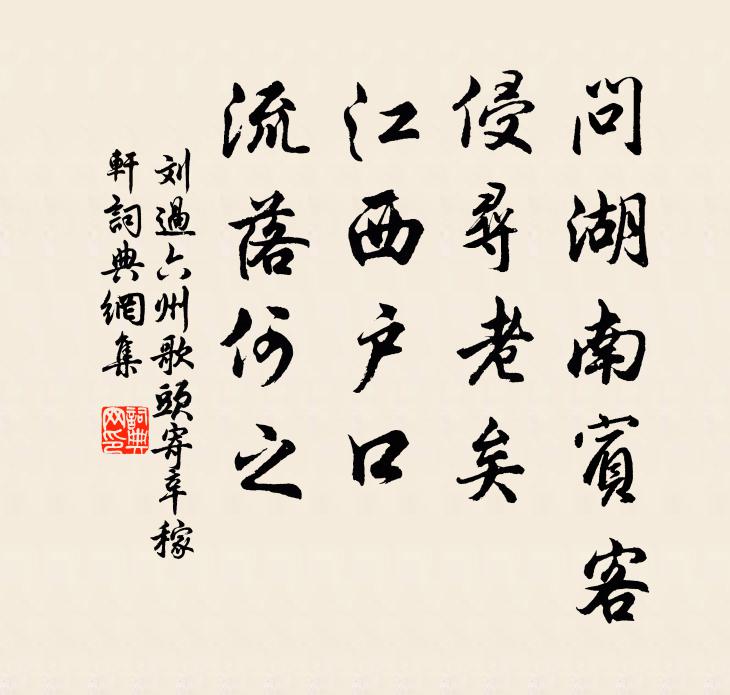 問湖南賓客
侵尋老矣
江西户口
流落何之
刘過六州歌頭寄辛稼
軒詞典網集
詞典
网印